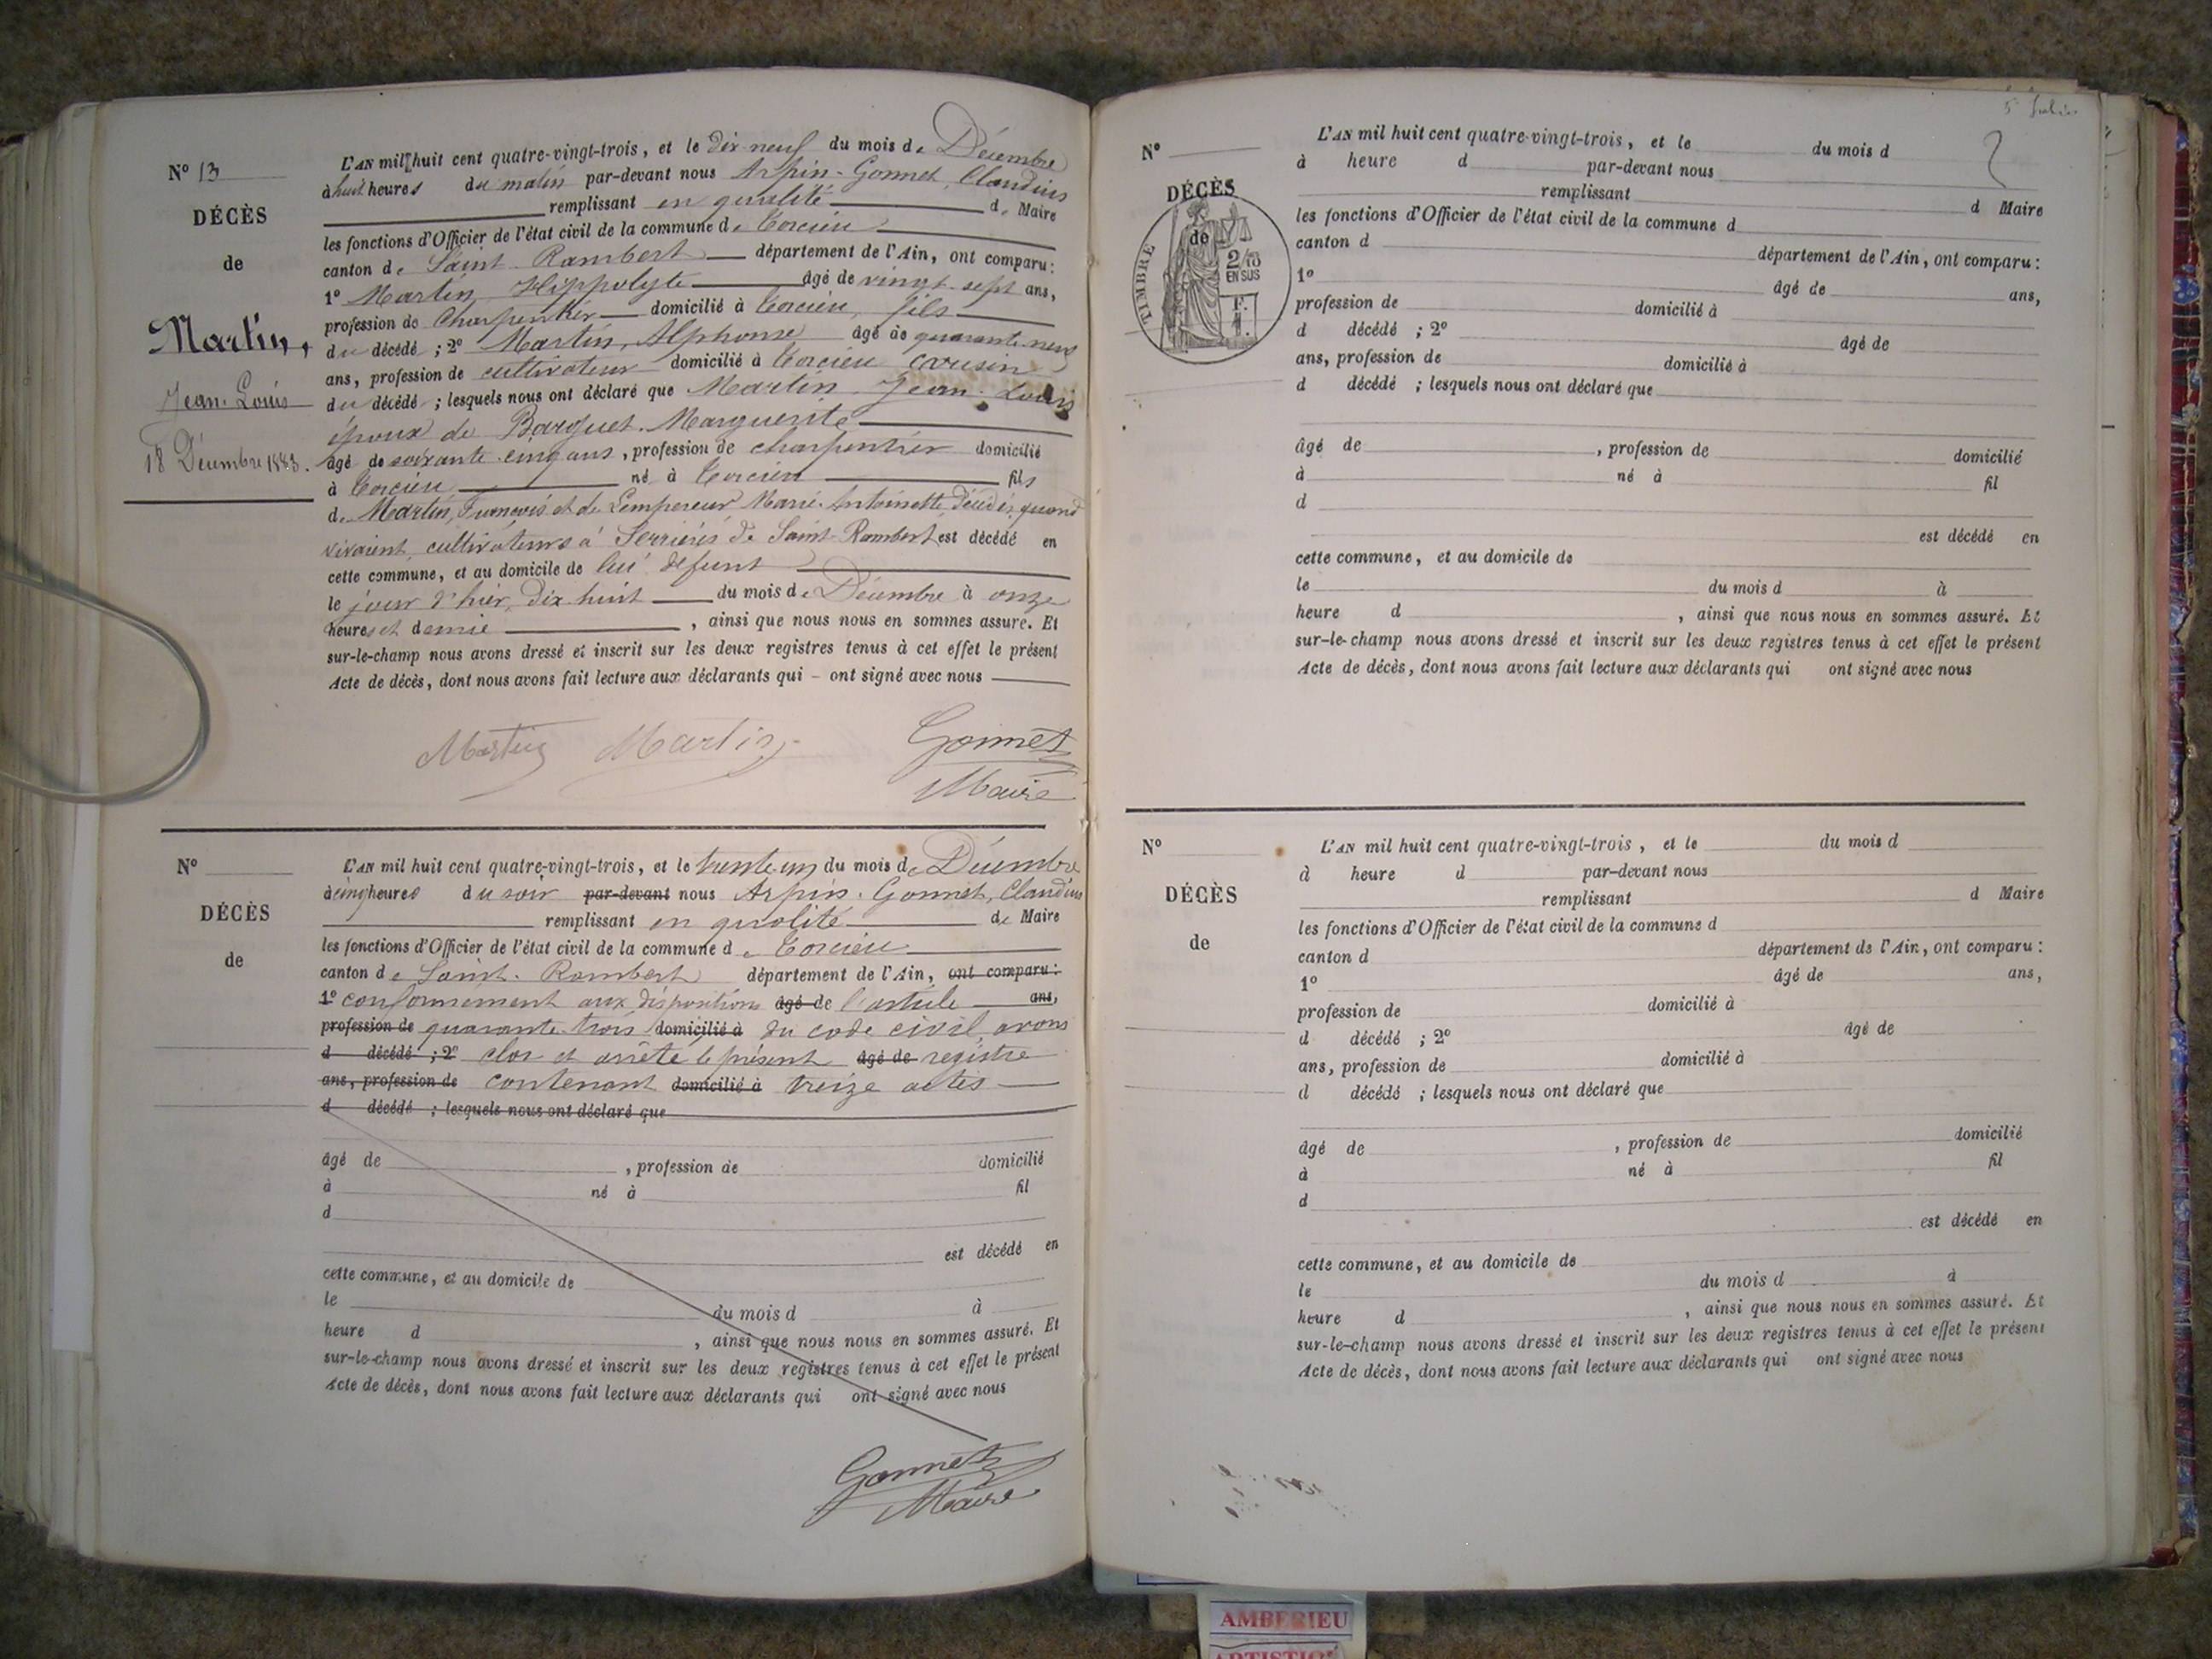 N° 13
DÉCÈS
de
Martin,
Jean-Louis
18 Décembre 1883.
L'AN mil huit cent quatre-vingt-trois, et le dix-neuf du mois de Décembre
à huit heures du matin par-devant nous Arpin-Gonnet, Claudius
remplissant en qualité de Maire
les fonctions d'Officier de l'état civil de la commune de Torcieu
canton de Saint-Rambert département de l'Ain, ont comparu :
1° Martin, Hippolyte âgé de vingt-sept ans,
profession de Charpentier domicilié à Torcieu, fils
du décédé ; 2° Martin, Alphonse âgé de quarante-neuf
ans, profession de cultivateur domicilié à Torcieu cousin
du décédé ; lesquels nous ont déclaré que Martin Jean-Louis
époux de Marguerite
âgé de soixante-cinq ans, profession de charpentier domicilié
à Torcieu né à Torcieu fils
de Martin, François et de Lempereur Marie-Antoinette, décédés, quand
vivaient cultivateurs à Serrières de Saint-Rambert est décédé en
cette commune, et au domicile de lui défunt
le jour d'hier, dix-huit du mois de Décembre à onze
heures et demie , ainsi que nous nous en sommes assuré. Et
sur-le-champ nous avons dressé et inscrit sur les deux registres tenus à cet effet le présent
Acte de décès, dont nous avons fait lecture aux déclarants qui - ont signé avec nous
Martin Martin Gonnet
Maire
N°
DÉCÈS
de
L'AN mil huit cent quatre-vingt-trois, et le trente-un du mois de Décembre
à cinq heures du soir par-devant nous Arpin-Gonnet, Claudius
remplissant en qualité de Maire
les fonctions d'Officier de l'état civil de la commune de Torcieu
canton de Saint-Rambert département de l'Ain, ont comparu :
1° conformément aux dispositions âgé de l'article ans,
profession de quarante-trois domicilié à du code civil, avons
d décédé ; 2° clos et arrêté le présent âgé de registre
ans, profession de contenant domicilié à treize actes
d décédé ; lesquels nous ont déclaré que
âgé de , profession de domicilié
à né à fil
d
est décédé en
cette commune, et au domicile de
le du mois d à
heure d , ainsi que nous nous en sommes assuré. Et
sur-le-champ nous avons dressé et inscrit sur les deux registres tenus à cet effet le présent
Acte de décès, dont nous avons fait lecture aux déclarants qui ont signé avec nous
Gonnet
Maire
N°
DÉCÈS
de
TIMBRE
2/10
EN SUS
F.
1.
L'AN mil huit cent quatre-vingt-trois, et le du mois d
à heure d par-devant nous
remplissant d Maire
les fonctions d'Officier de l'état civil de la commune d
canton d département de l'Ain, ont comparu :
1° âgé de ans,
profession de domicilié à
d décédé ; 2° âgé de
ans, profession de domicilié à
d décédé ; lesquels nous ont déclaré que
âgé de , profession de domicilié
à né à fil
d
est décédé en
cette commune, et au domicile de
le du mois d à
heure d , ainsi que nous nous en sommes assuré. Et
sur-le-champ nous avons dressé et inscrit sur les deux registres tenus à cet effet le présent
Acte de décès, dont nous avons fait lecture aux déclarants qui ont signé avec nous
N°
DÉCÈS
de
L'AN mil huit cent quatre-vingt-trois, et le du mois d
à heure d par-devant nous
remplissant d Maire
les fonctions d'Officier de l'état civil de la commune d
canton d département de l'Ain, ont comparu :
1° âgé de ans,
profession de domicilié à
d décédé ; 2° âgé de
ans, profession de domicilié à
d décédé ; lesquels nous ont déclaré que
âgé de , profession de domicilié
à né à fil
d
est décédé en
cette commune, et au domicile de
le du mois d à
heure d , ainsi que nous nous en sommes assuré. Et
sur-le-champ nous avons dressé et inscrit sur les deux registres tenus à cet effet le présent
Acte de décès, dont nous avons fait lecture aux déclarants qui ont signé avec nous
AMBERIEU